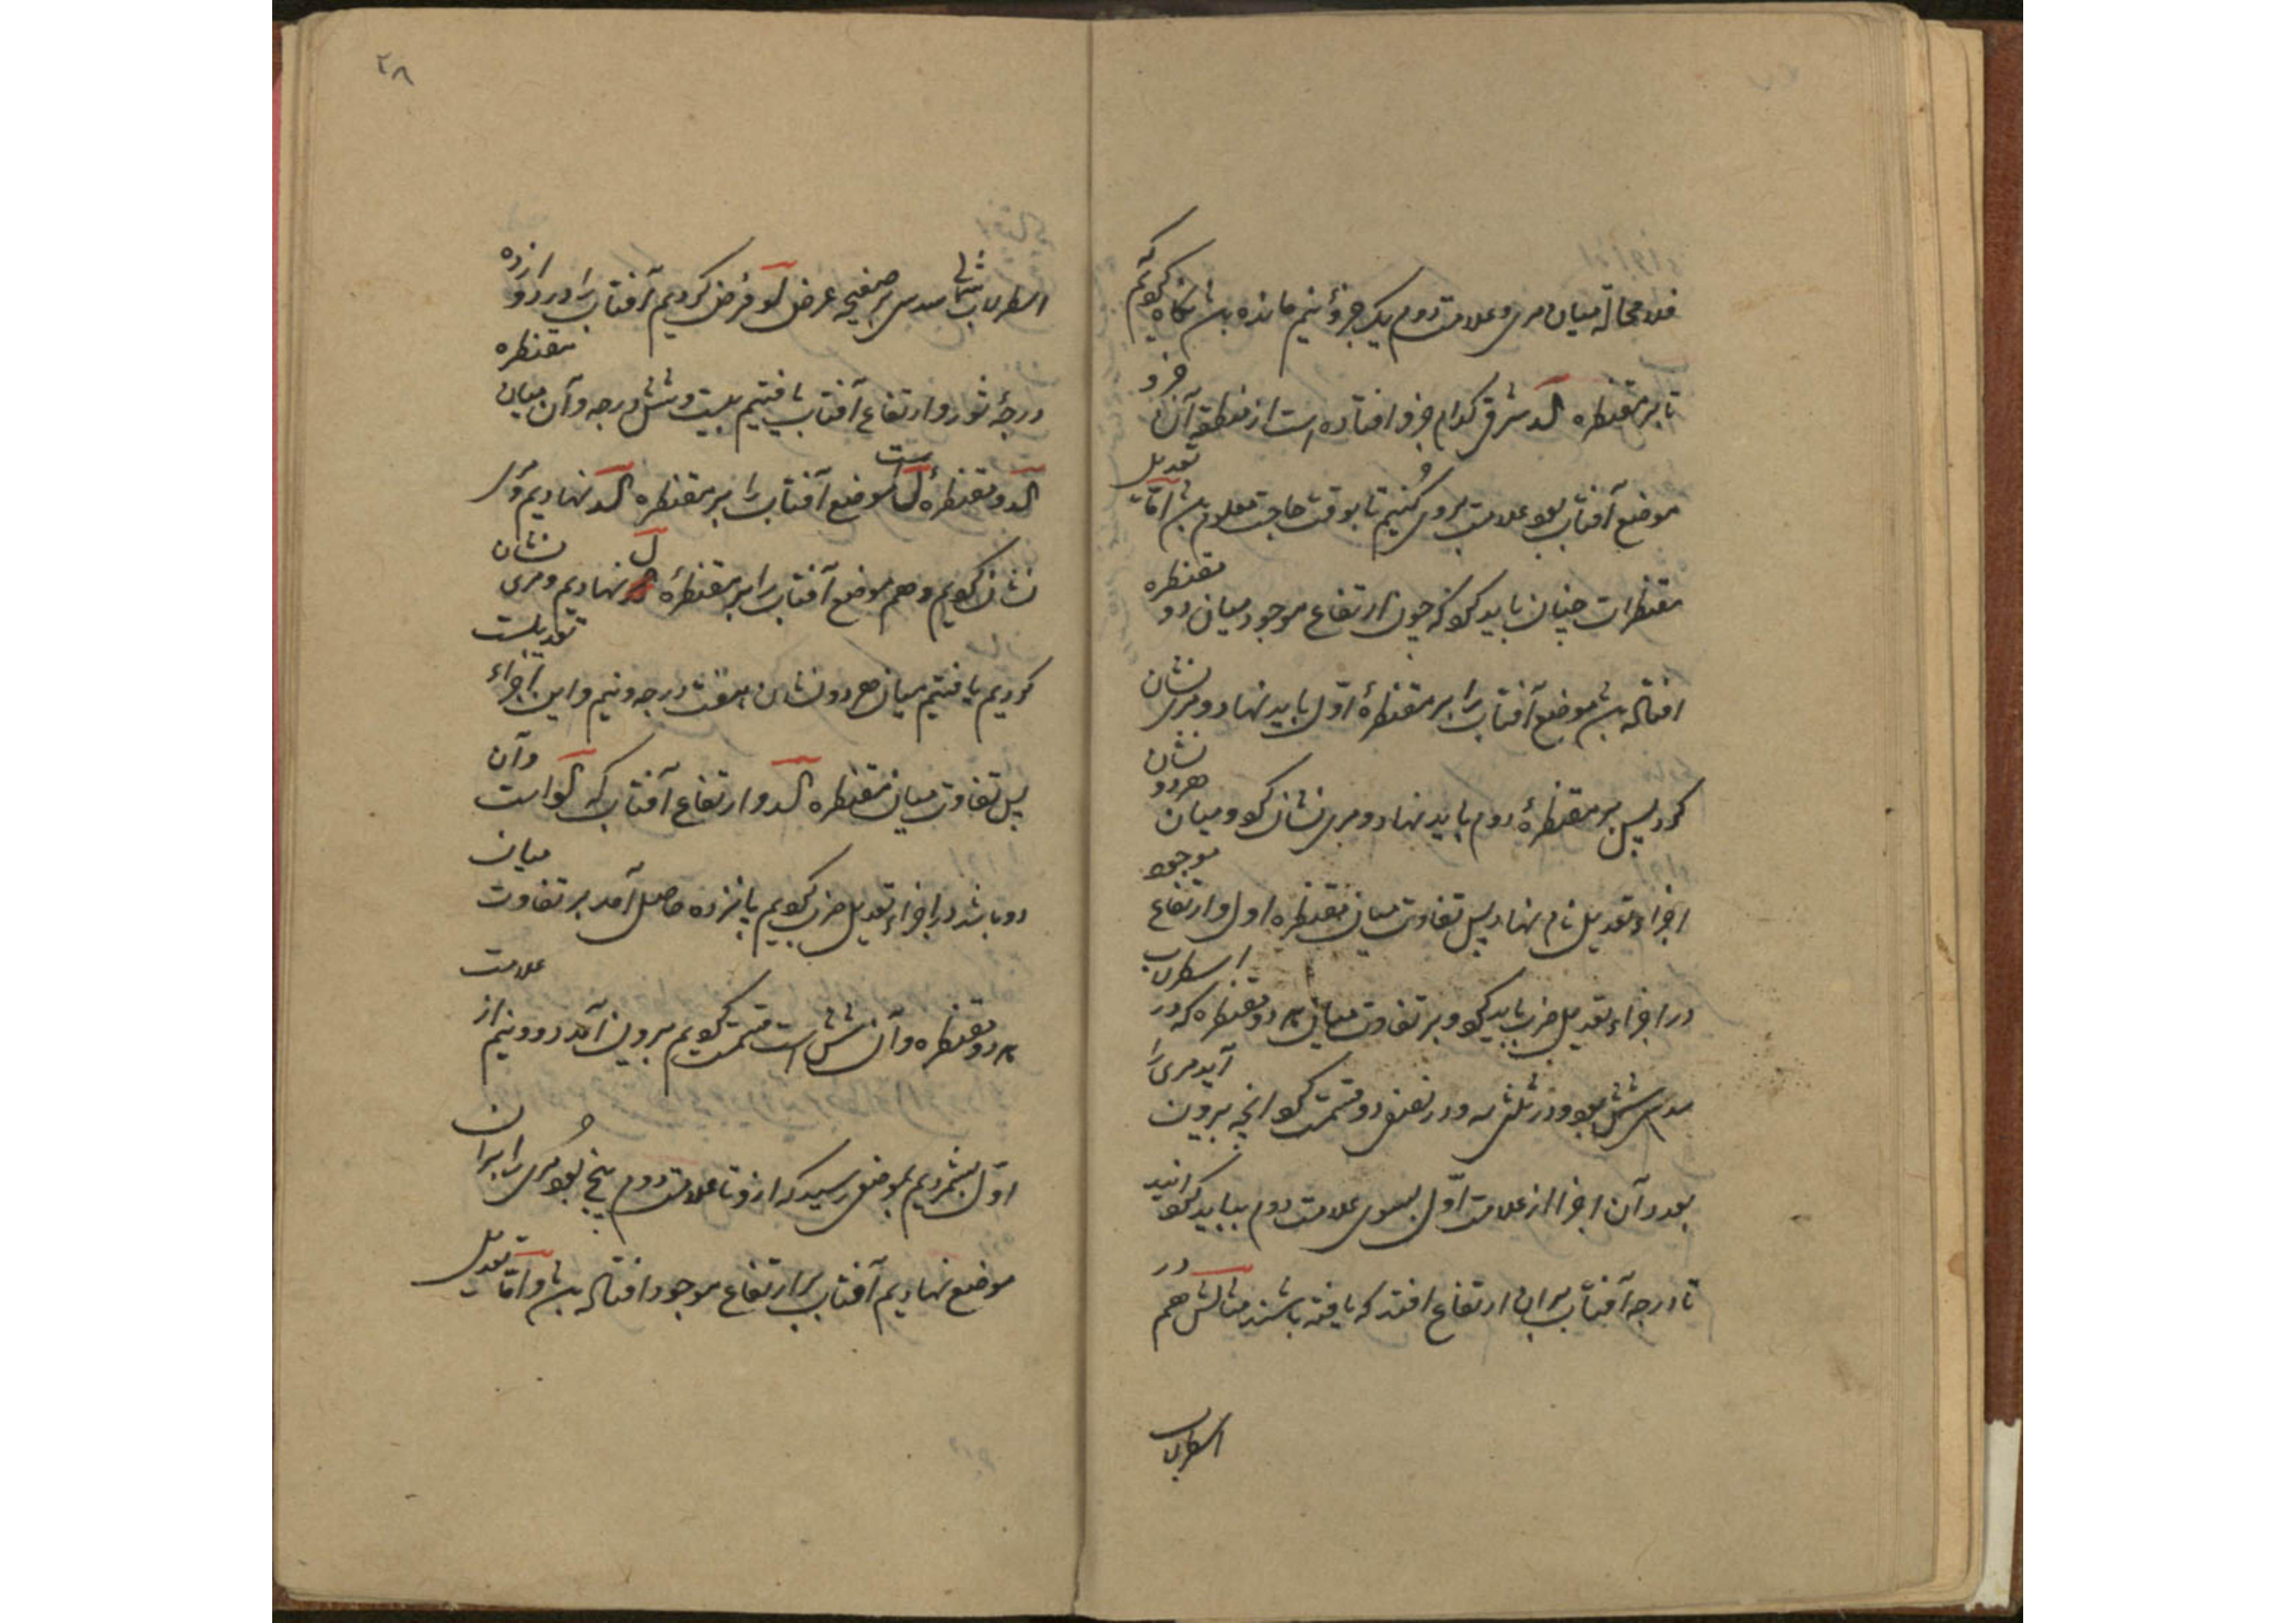 فلا محاله میان مری و علامت دوم یک جزؤ نیم مانده باشد نکاه کنیم
تا بر مقنطره کد شرقی کدام جزو افتاده است از منطقه آن جزو
موضع آفتاب بود علامت بروی کنیم تا بوقت حاجت معلوم باشد اما تعدیل
مقنطرات چنان باید کرد که چون ارتفاع موجود میان دو مقنطره
افتاده باشد موضع آفتاب را بر مقنطرهٔ اوّل باید نهاد و مری نشان
کرد پس بر مقنطرهٔ دوم باید نهاد و مری نشان کرد و میان هر دو نشان
اجزاء تعدیل نام نهاد پس تفاوت میان مقنطره اول و ارتفاع موجود
در اجزاء تعدیل ضرب باید کرد و بر تفاوت میان هر دو مقنطره که در اسطرلاب
سدس شش بود و در ثلث سه و در نصف دو قسمت کرد انچه بیرون آید مری را
بعدد آن اجزا از علامت اوّل بسوی علامت دوم بباید کردانید
تا درجه آفتاب بران ارتفاع افتد که یافته باشند مثالش هم در
اسطرلاب
۲۸
اسطرلاب شمالی سدس بر صفیحه عرض لو فرض کردیم آفتاب را در دوازده
درجهٔ ثور و ارتفاع آفتاب یافتیم بیست و شش درجه و آن میان مقنطره
کد و مقنطرهٔ ل است موضع آفتاب را بر مقنطره کد نهادیم و مری
نشان کردیم و هم موضع آفتاب را بر مقنطرهٔ ل نهادیم و مری نشان
کردیم یافتیم میان هر دو نشان هفت درجه و نیم و این اجزاء تعدیلست
پس تفاوت میان مقنطره کد و ارتفاع آفتاب که کو است و آن
دو باشد در اجزاء تعدیل ضرب کردیم پانزده حاصل آمد بر تفاوت میان
هر دو مقنطره و آن شش است قسمت کردیم بیرون آمد دو و نیم از علامت
اوّل بشمردیم بموضعی رسید که ازو تا علامت دوم پنج بود مری را بران
موضع نهادیم آفتاب بر ارتفاع موجود افتاده باشد و اما تعدیل